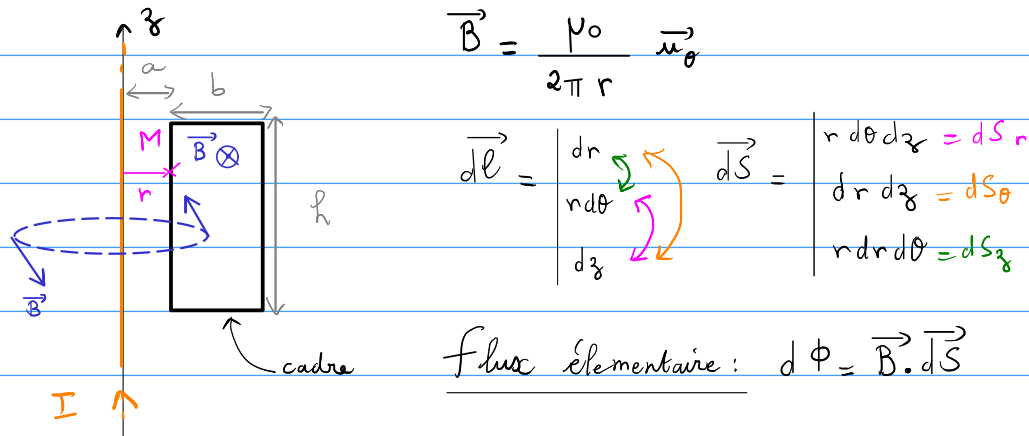 z
a
b
M
B⃗ ⊗
r
h
B⃗
cadre
I
B⃗ = μ0 / 2π r u⃗θ
dℓ⃗ = | dr
rdθ
dz
dS⃗ = | r dθ dz = dSr
dr dz = dSθ
r dr dθ = dSz
flux élementaire : dΦ = B⃗ . dS⃗